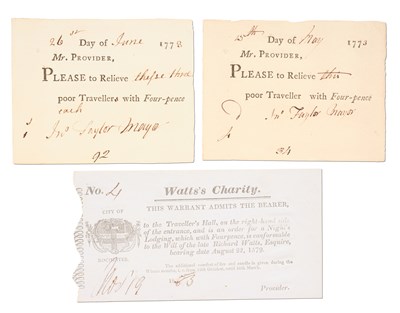 26 Day of June 1773
Mr. PROVIDER,
PLEASE to Relieve these three
poor Travellers with Four-pence
each
Jno. Taylor Mayor
92
Day of 1773
Mr. PROVIDER,
PLEASE to Relieve
poor Travellers with Four-pence
Jno. Taylor Mayor
34
No. 4 Watts's Charity.
CITY OF
ROCHESTER
THIS WARRANT ADMITS THE BEARER,
to the Traveller's Hall, on the right-hand side
of the entrance, and is an order for a Night's
Lodging, which with Fourpence, is conformable
to the Will of the late Richard Watts, Esquire,
bearing date August 22, 1579.
Nov. 19
Provider.